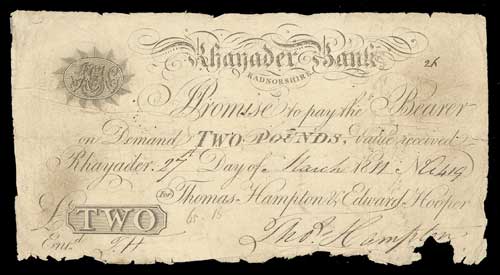 Rhayader Bank
RADNORSHIRE
I Promise to pay the Bearer
on Demand TWO POUNDS, Value received
Rhayader. 27th Day of March 1811 No A419
For Thomas Hampton & Edward Hooper
£ TWO
Thos. Hampton
Entd. T H